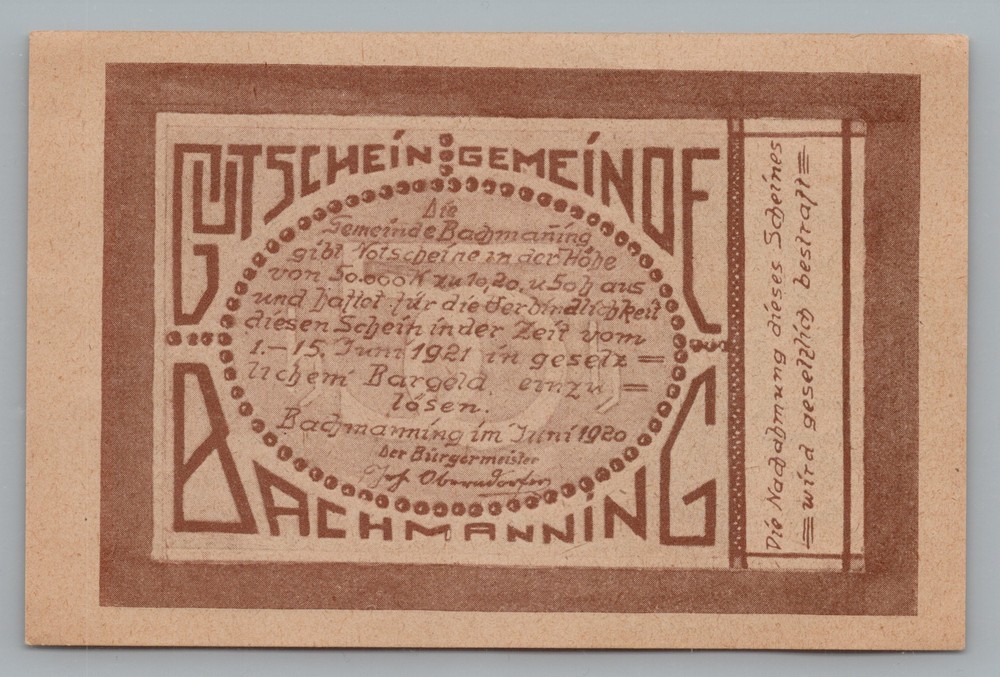 GUTSCHEIN GEMEINDE
Die
Gemeinde Bachman̄ing
gibt Notscheine in der Höhe
von 50.000 K zu 10, 20, u 50 h aus
und haftet für die Verbindlichkeit
diesen Schein in der Zeit vom
1.–15. Juni 1921 in gesetz=
lichem Bargeld einzu=
lösen.
Bachmanning im Juni 1920
Der Bürgermeister
Jos. Oberndorfer
BACHMANNING
Die Nachahmung dieses Scheines
=wird gesetzlich bestraft=